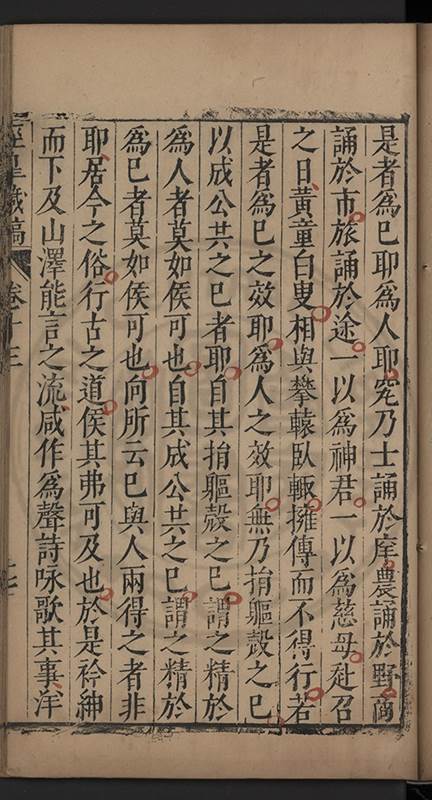 是者爲己耶爲人耶究乃士誦於庠農誦於野商
誦於市旅誦於途一以爲神君一以爲慈母赴召
之日黃童白叟相與攀轅臥轍擁傳而不得行若
是者爲己之效耶爲人之效耶無乃捐軀殼之己
以成公共之己者耶自其捐軀殼之己謂之精於
爲人者莫如侯可也自其成公共之己謂之精於
爲己者莫如侯可也向所云己與人兩得之者非
耶居今之俗行古之道侯其弗可及也於是衿紳
而下及山澤能言之流咸作爲聲詩咏歌其事洋
涇臯藏稿 卷十三 七